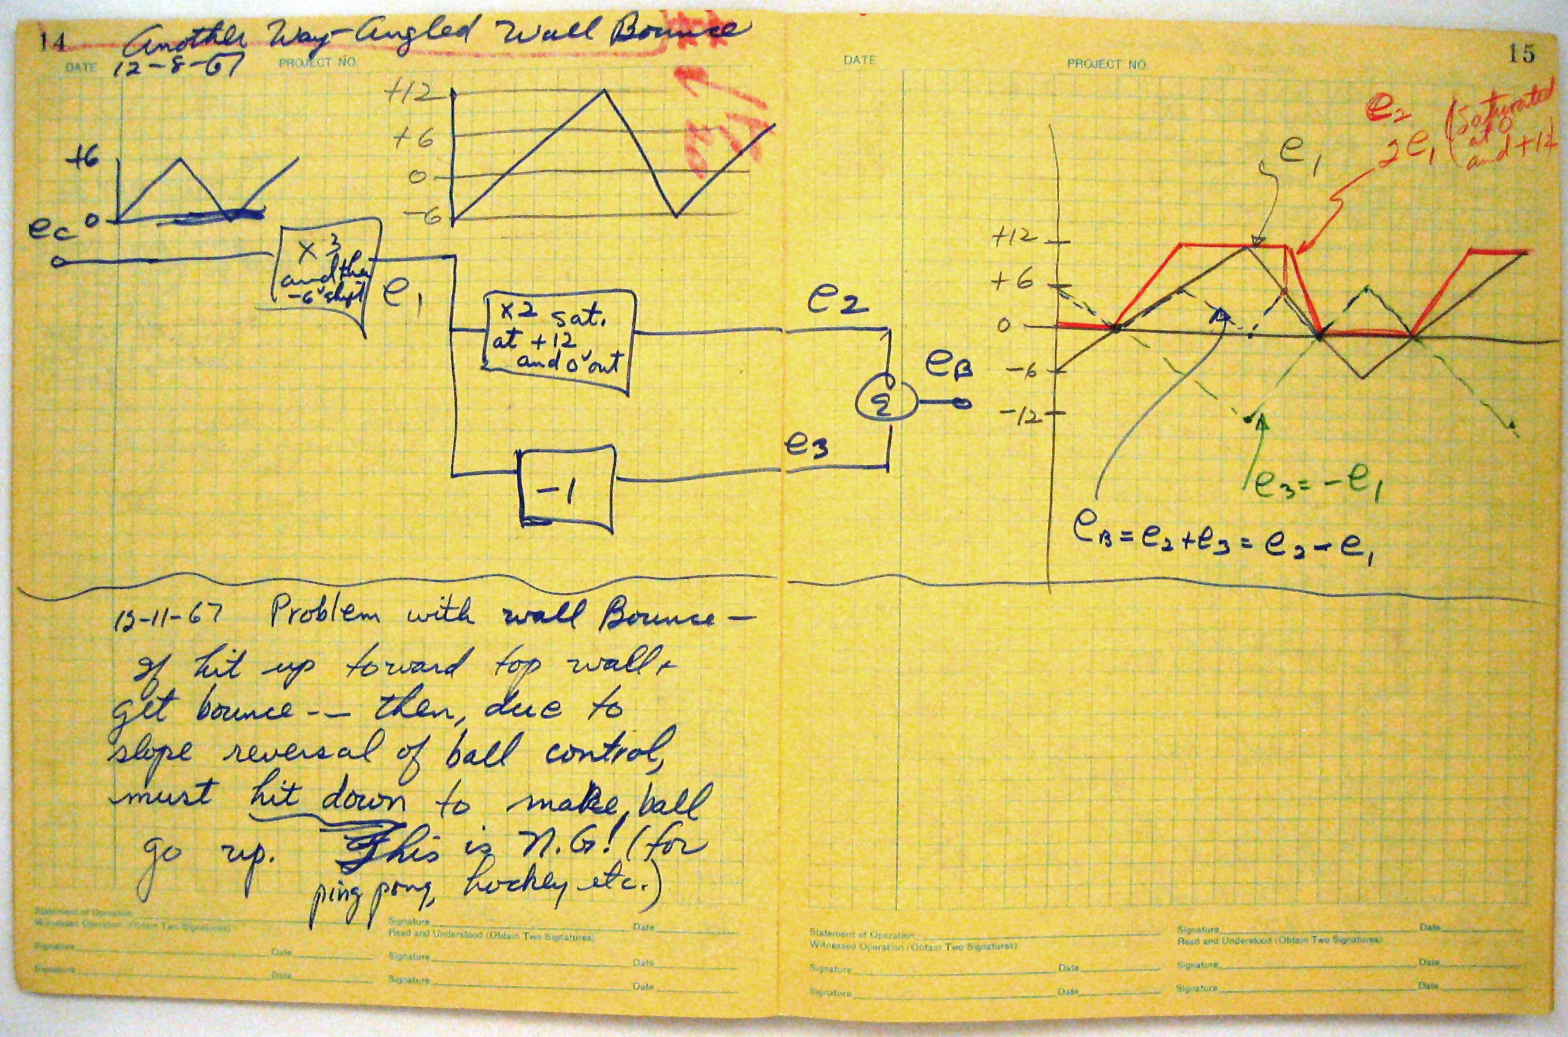 14
Another Way-Angled Wall Bounce
DATE 12-8-67 PROJECT NO.
+12
+6
0
-6
+6
0
ec
x 3
and then
-6 v shift
e1
x2 sat.
at +12
and 0 v out
-1
12-11-67 Problem with wall Bounce —
If hit up toward top wall +
get bounce -- then, due to
slope reversal of ball control,
must hit down to make ball
go up. This is N.G! (for
ping pong, hockey etc.)
Statement of Operation
Witnessed Operation (Obtain Two Signatures)
Signature Date
Signature Date
Signature Date
Read and Understood (Obtain Two Signatures)
Signature Date
Signature Date
15
DATE PROJECT NO.
e2
2e1 (saturated
at 0
and +12
e1
+12
+6
0
-6
-12
e2
eB
e3
e3 = -e1
eB = e2 + e3 = e2 - e1
Statement of Operation
Witnessed Operation (Obtain Two Signatures)
Signature Date
Signature Date
Signature Date
Read and Understood (Obtain Two Signatures)
Signature Date
Signature Date